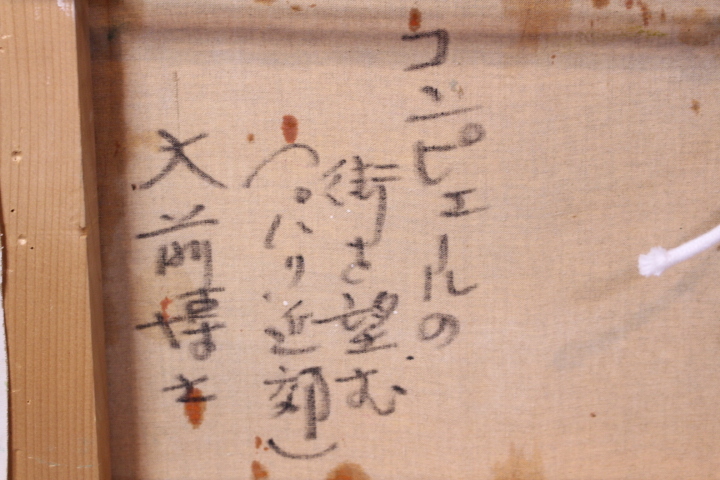 コンピエルの
街を望む
(パリ近郊)
大前博士